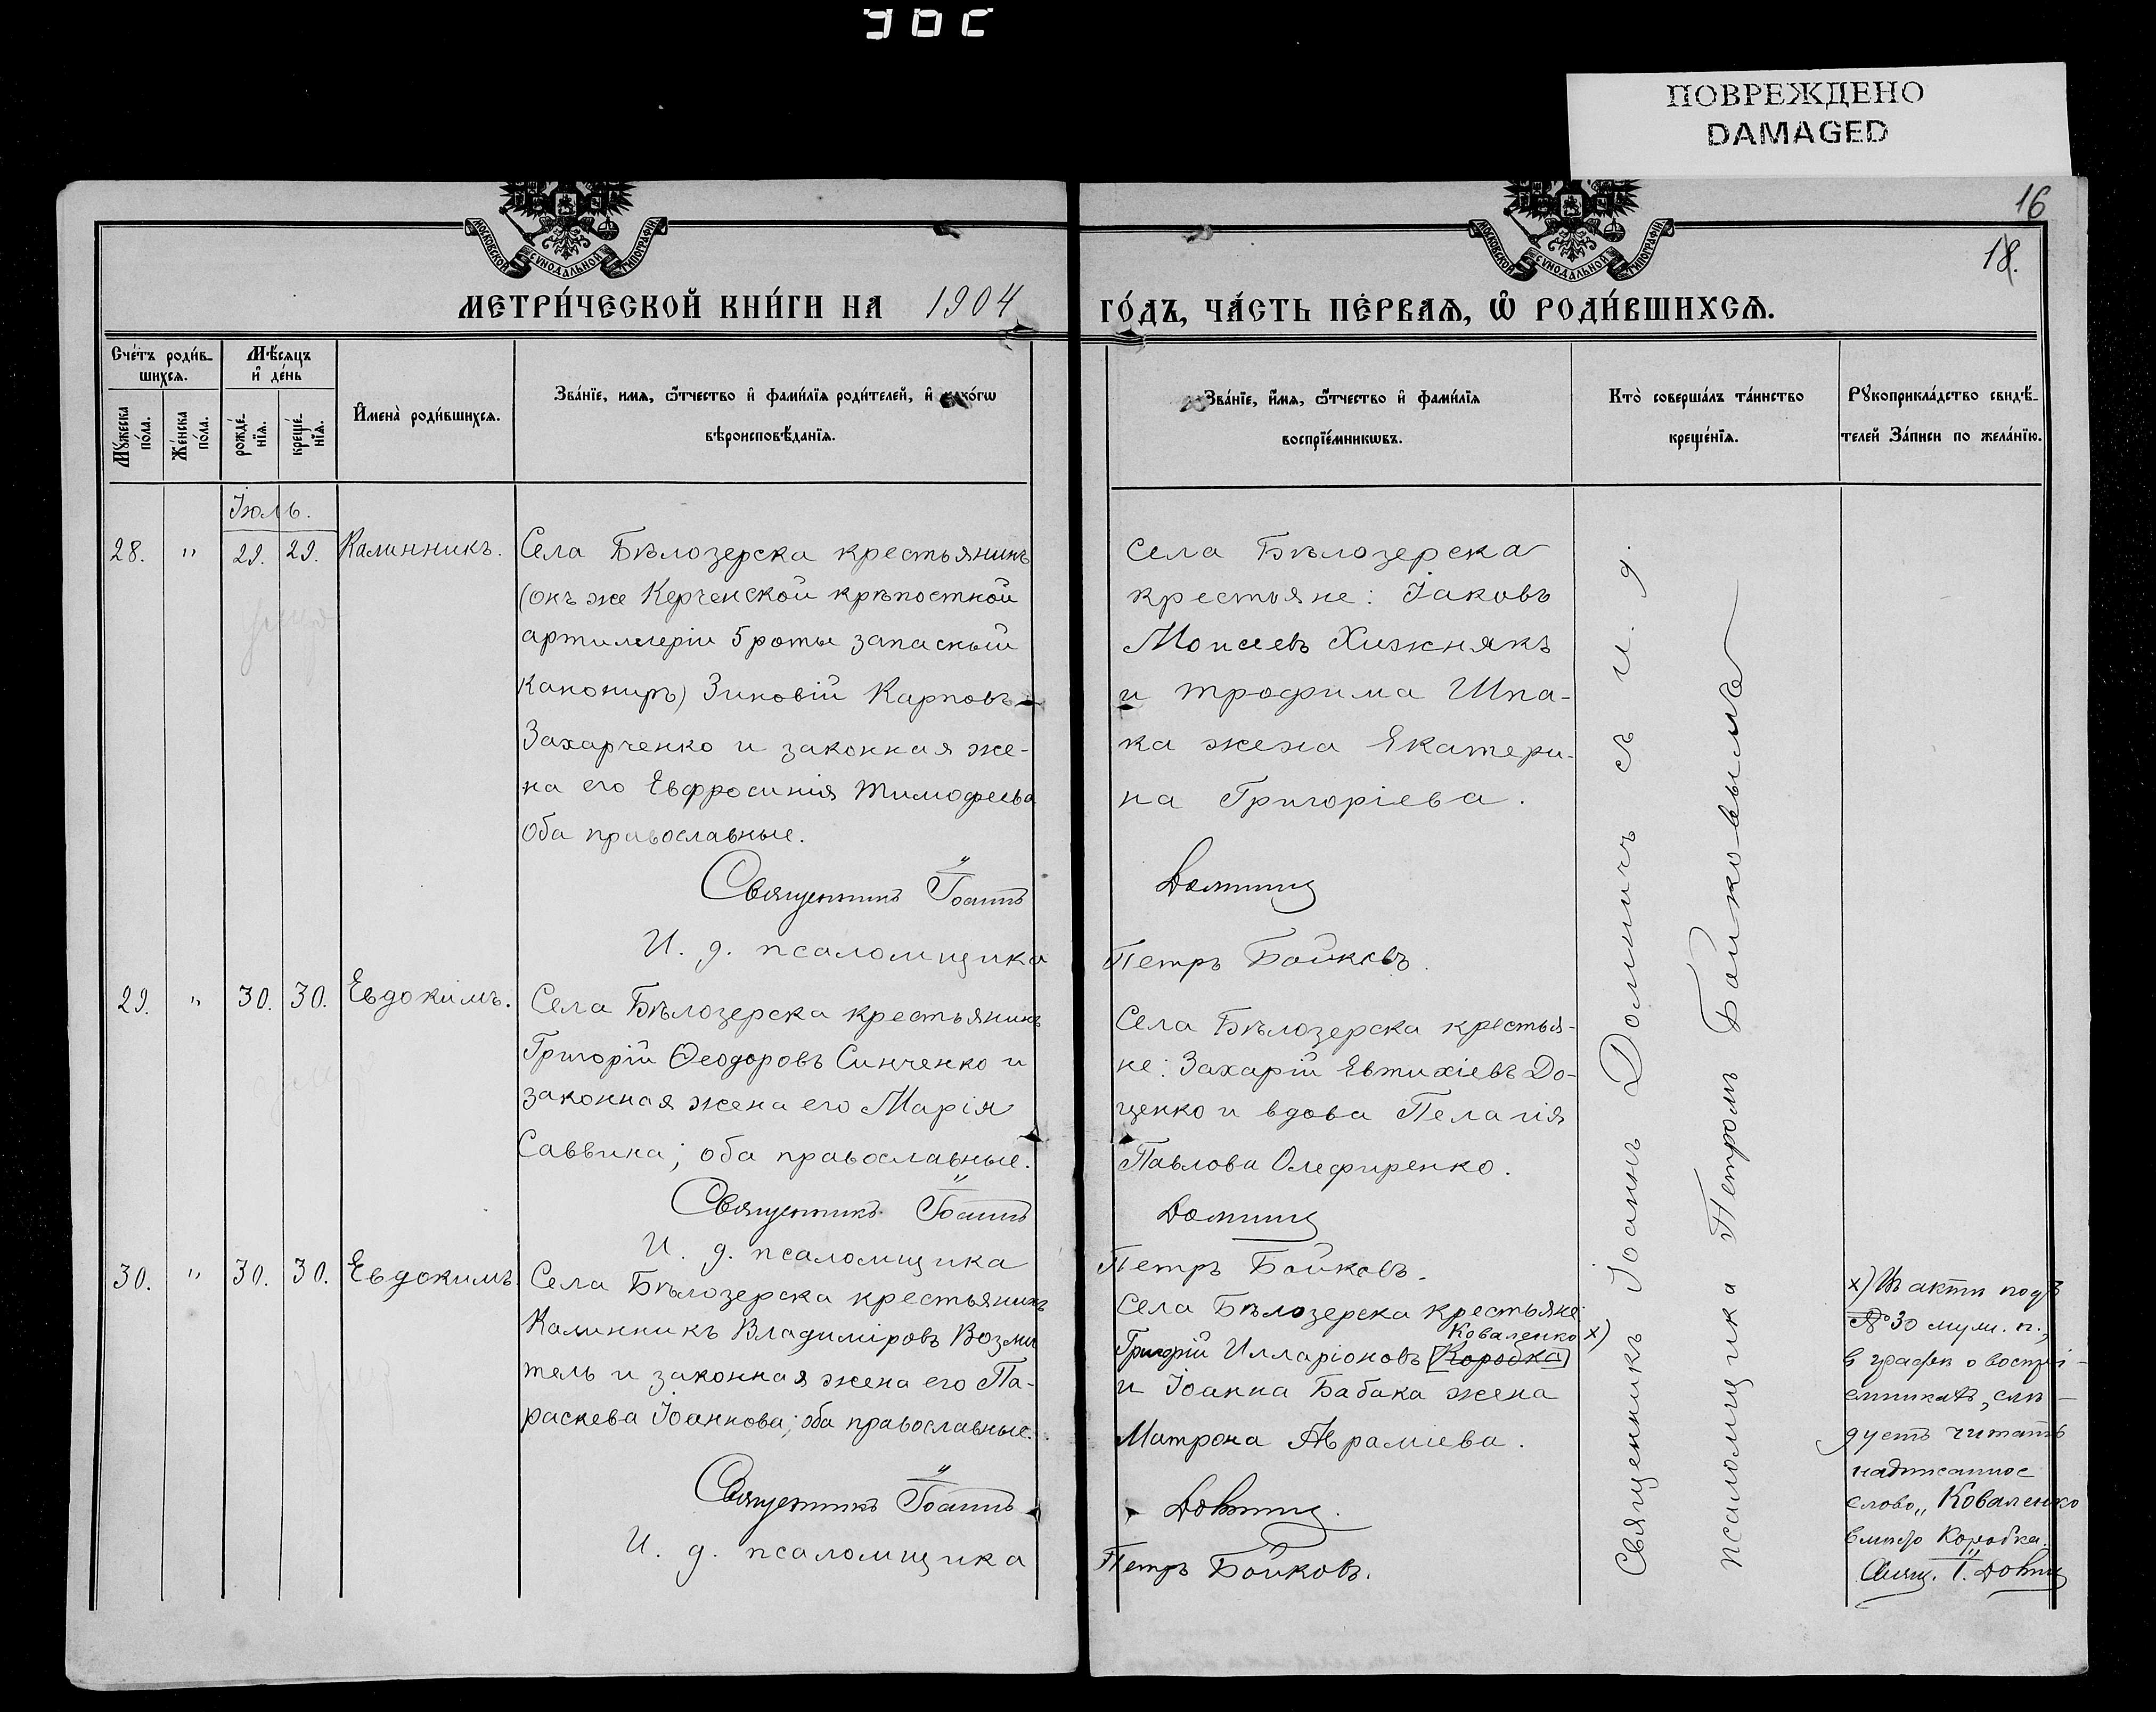 ПОВРЕЖДЕНО
DAMAGED
16
18.
МОСКОВСКОЙ СѴНОДАЛЬНОЙ ТИПОГРАФІИ
МОСКОВСКОЙ СѴНОДАЛЬНОЙ ТИПОГРАФІИ
МЕТРИ́ЧЕСКОЙ КНИ́ГИ НА 1904
ГО́ДЪ, ЧА́СТЬ ПЕ́РВАѦ, Ѡ҆ РОДИ́ВШИХСѦ.
Сче́тъ роди́в-
шихсѧ.
Мꙋ́жеска
по́ла.
Же́нска
по́ла.
Мѣ́сѧцъ
и҆ де́нь
рожде́-
нїѧ.
креще́-
нїѧ.
И҆мена̀ роди́вшихсѧ.
Зва́нїе, имѧ, ѻ҆́тчество и҆ фами́лїѧ роди́телей, и҆ како́гѡ
вѣроисповѣ́данїѧ.
Зва́нїе, и҆́мѧ, ѻ҆́тчество и҆ фами́лїѧ
воспрїе́мникѡвъ.
Кто̀ соверша́лъ та́инство
креще́нїѧ.
Рꙋкоприкла́дство свидѣ́-
телей За́писи по жела́нїю.
Іюль.
28. " 29. 29. Калинникъ.
Села Бѣлозерска крестьянинъ
(онъ же Керченской крѣпостной
артиллеріи 5 роты запасный
канониръ) Зиновій Карповъ
Захарченко и законная же-
на его Евфросинія Тимофеева
Оба православные.
Священникъ Іоаннъ
И. д. псаломщика
Села Бѣлозерска
крестьяне: Іаковъ
Моисеевъ Хижнякъ
и Трофима Шпа-
ка жена Екатери-
на Григоріева.
Долинич
Петръ Бойковъ.
29. " 30. 30. Евдокимъ.
Села Бѣлозерска крестьянинъ
Григорій Ѳеодоровъ Синченко и
законная жена его Марія
Саввина; оба православные.
Священникъ Іоаннъ
И. д. псаломщика
Села Бѣлозерска крестья-
не: Захарій Евтихіевъ До-
ценко и вдова Пелагія
Павлова Олефиренко.
Долинич
Петръ Бойковъ.
30. " 30. 30. Евдокимъ
Села Бѣлозерска крестьянинъ
Калинникъ Владиміровъ Возми
тель и законная жена его Па-
раскева Іоаннова; оба православные.
Священникъ Іоаннъ
И. д. псаломщика
Села Бѣлозерска крестьяне:
Коваленко х)
Григорій Илларіоновъ [Коробка]
и Іоанна Бабака жена
Матрона Авраміева.
Долинич.
Петръ Бойковъ.
Священникъ Іоаннъ Долиничъ съ и. д.
псаломщика Петромъ Бойковымъ
х) Въ актѣ подъ
№ 30 муж. п.,
в графѣ о воспрі-
емникахъ, слѣ-
дуетъ читать
надписанное
слово „Коваленко
вмѣсто Коробка."
Свящ. І. Долинич